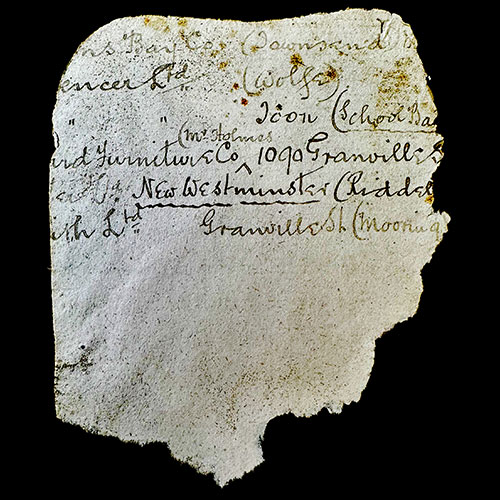 ns Bay Co. (Townsend)
encer Ltd (Wolfe)
" " Icon (School Ba
(Mr Holmes
rd Furniture Co ^ 1090 Granville S
New Westminster (Riddel
ith Ltd Granville St. (Mooring